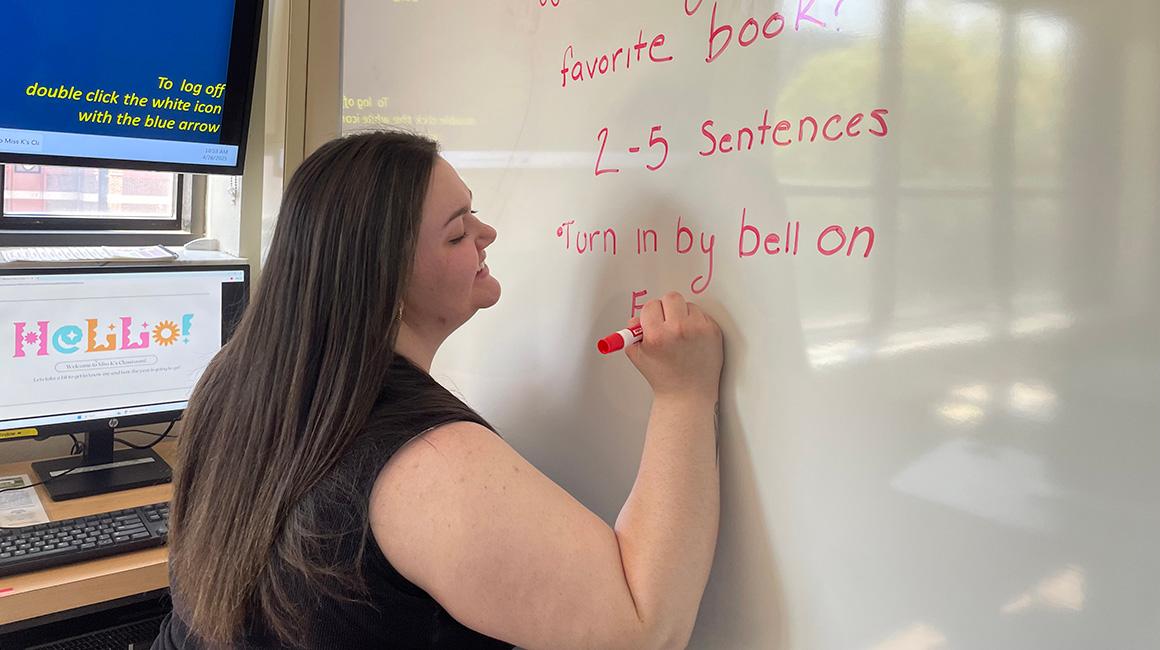 To log off
double click the white icon
with the blue arrow
o Miss K's Cla
10:53 AM
HELLO!
Welcome to Miss K's Classroom!
Lets take a bit to get to know me and how the year is going to go!
hp
favorite book?
2-5 Sentences
•Turn in by bell on
F